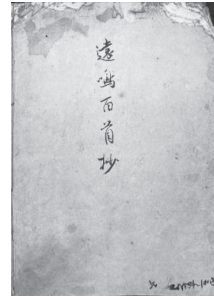 遠鳴百首抄